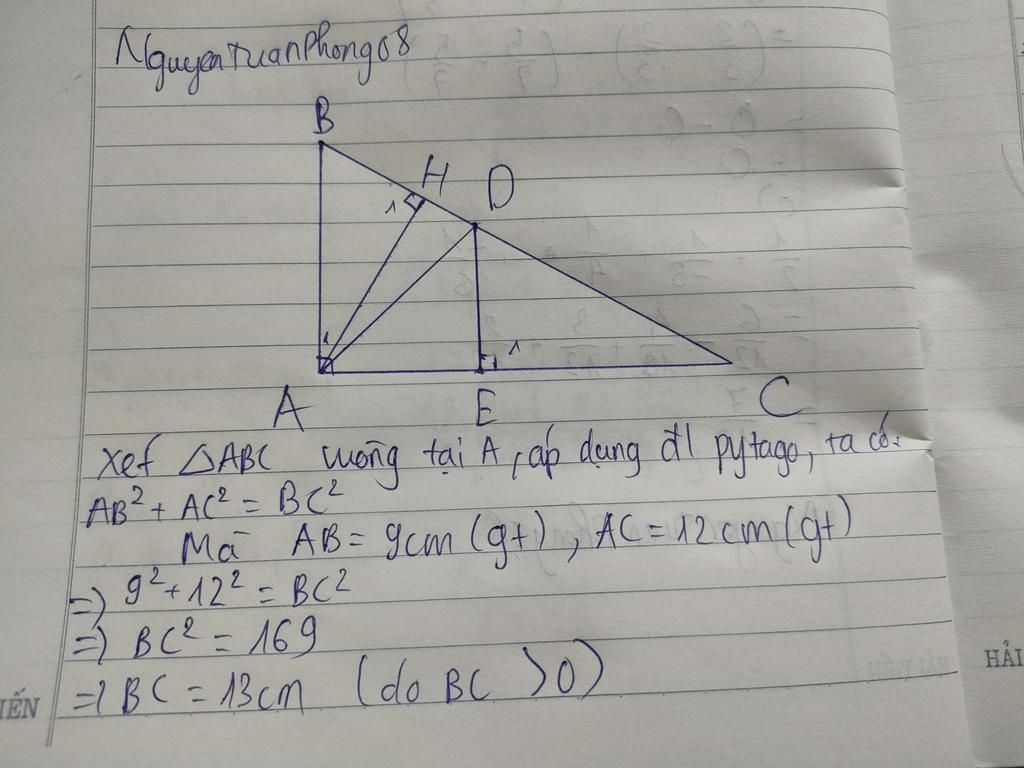 Nguyentuanphong68
B
H
D
1
1
1
A
E
C
Xét △ABC vuông tại A, áp dụng đl pytago, ta có:
AB² + AC² = BC²
Mà AB = 9cm (gt), AC = 12cm (gt)
=> 9² + 12² = BC²
=> BC² = 169
=> BC = 13cm (do BC > 0)
HẢI
IẾN